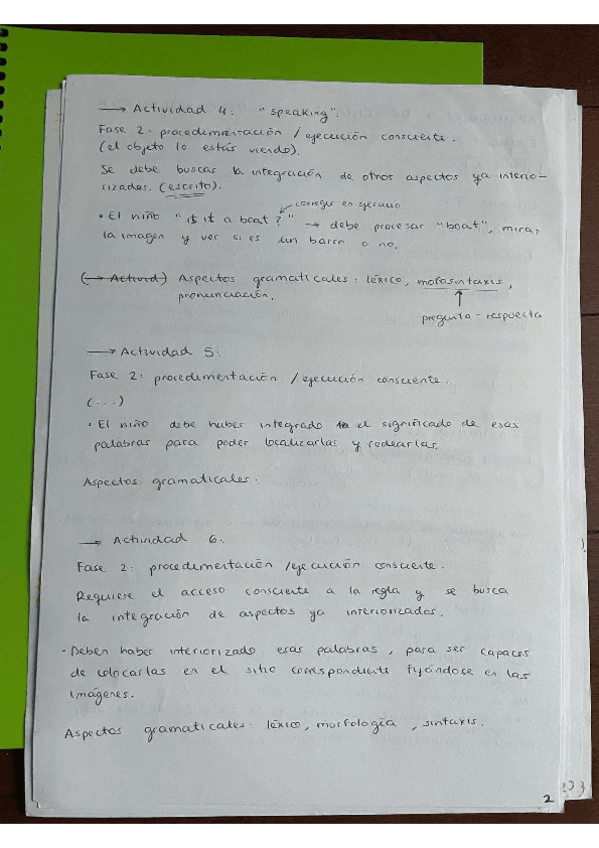 → Actividad 4: "speaking".
Fase 2: procedimentación / ejecución consciente.
(el objeto lo estás viendo).
Se debe buscar la integración de otros aspectos ya interio-
rizados. (escrito).
corregir en ejercicio
• El niño "is it a boat?" → debe procesar "boat", mirar
la imagen y ver si es un barco o no.
(→ Activid) Aspectos gramaticales: léxico, mofosintaxis,
pronunciación.
pregunta - respuesta
→ Actividad 5:
Fase 2: procedimentación / ejecución consciente.
(...)
• El niño debe haber integrado el significado de esas
palabras para poder localizarlas y rodearlas.
Aspectos gramaticales.
→ Actividad 6.
Fase 2: procedimentación / ejecución consciente.
Requiere el acceso consciente a la regla y se busca
la integración de aspectos ya interiorizados.
• Deben haber interiorizado esas palabras, para ser capaces
de colocarlas en el sitio correspondiente fijándose en las
imágenes.
Aspectos gramaticales: léxico, morfología, sintaxis.
2